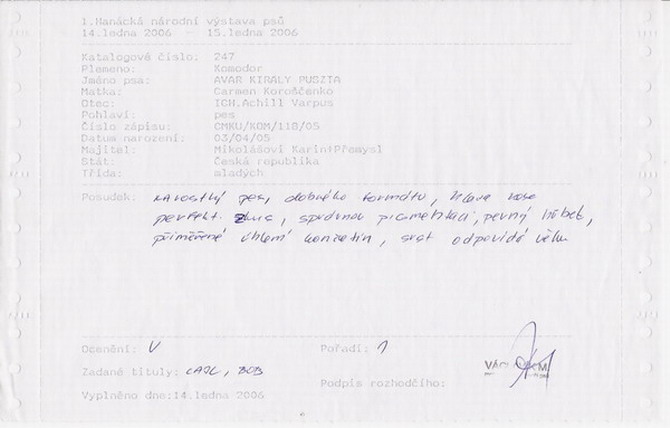 1.Hanácká národní výstava psů
14.ledna 2006 - 15.ledna 2006
Katalogové číslo: 247
Plemeno: Komodor
Jméno psa: AVAR KIRÁLY PUSZTA
Matka: Carmen Koroščenko
Otec: ICH.Achill Varpus
Pohlaví: pes
Číslo zápisu: CMKU/KOM/118/05
Datum narození: 03/04/05
Majitel: Mikolášovi Karin+Přemysl
Stát: Česká republika
Třída: mladých
Posudek: pes, dobrého formátu,
perfekt. skus, správnou pigmentaci, pevný hřbet,
přiměřené úhlení končetin, srst odpovídá věku
Ocenění: V Pořadí: 1
Zadané tituly: CAJC, BOB
Podpis rozhodčího:
Vyplněno dne:14.ledna 2006